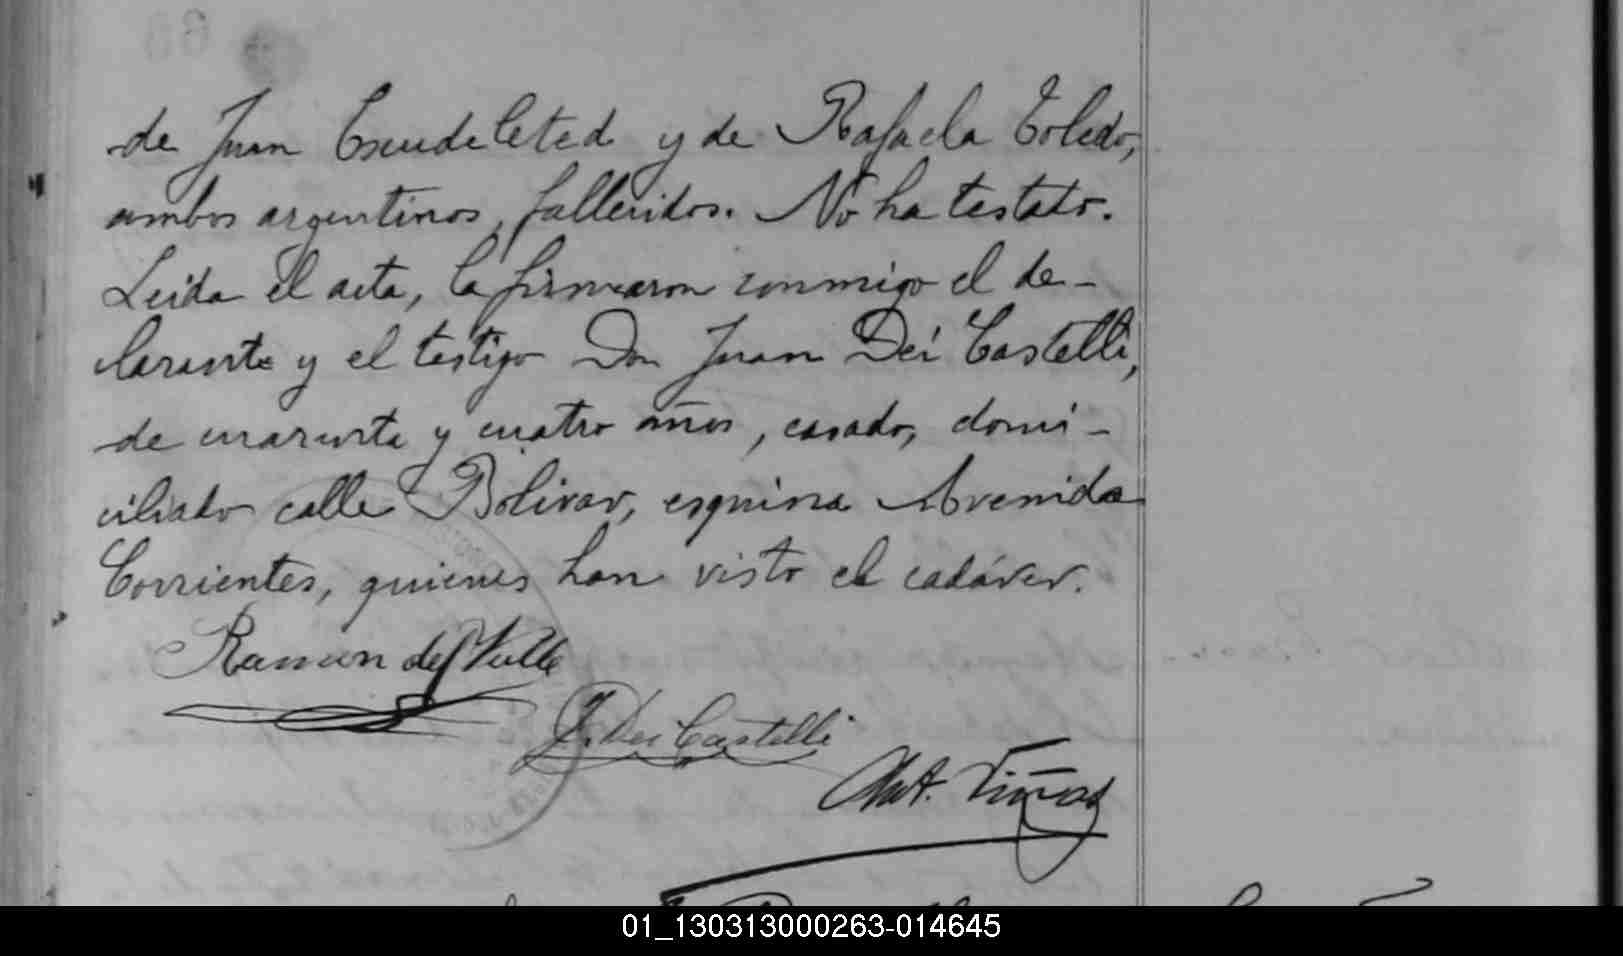 de Juan y de Rafaela Toledo,
ambos argentinos, fallecidos. No ha testado.
Leida el acta, la firmaron conmigo el de-
clarante y el testigo Don Juan Dei Castelli,
de cuarenta y cuatro años, casado, domi-
ciliado calle Bolivar, esquina Avenida
Corrientes, quienes han visto el cadáver.
Ramon del Valle
J. Dei Castelli
Ant. Viñas
01_130313000263-014645